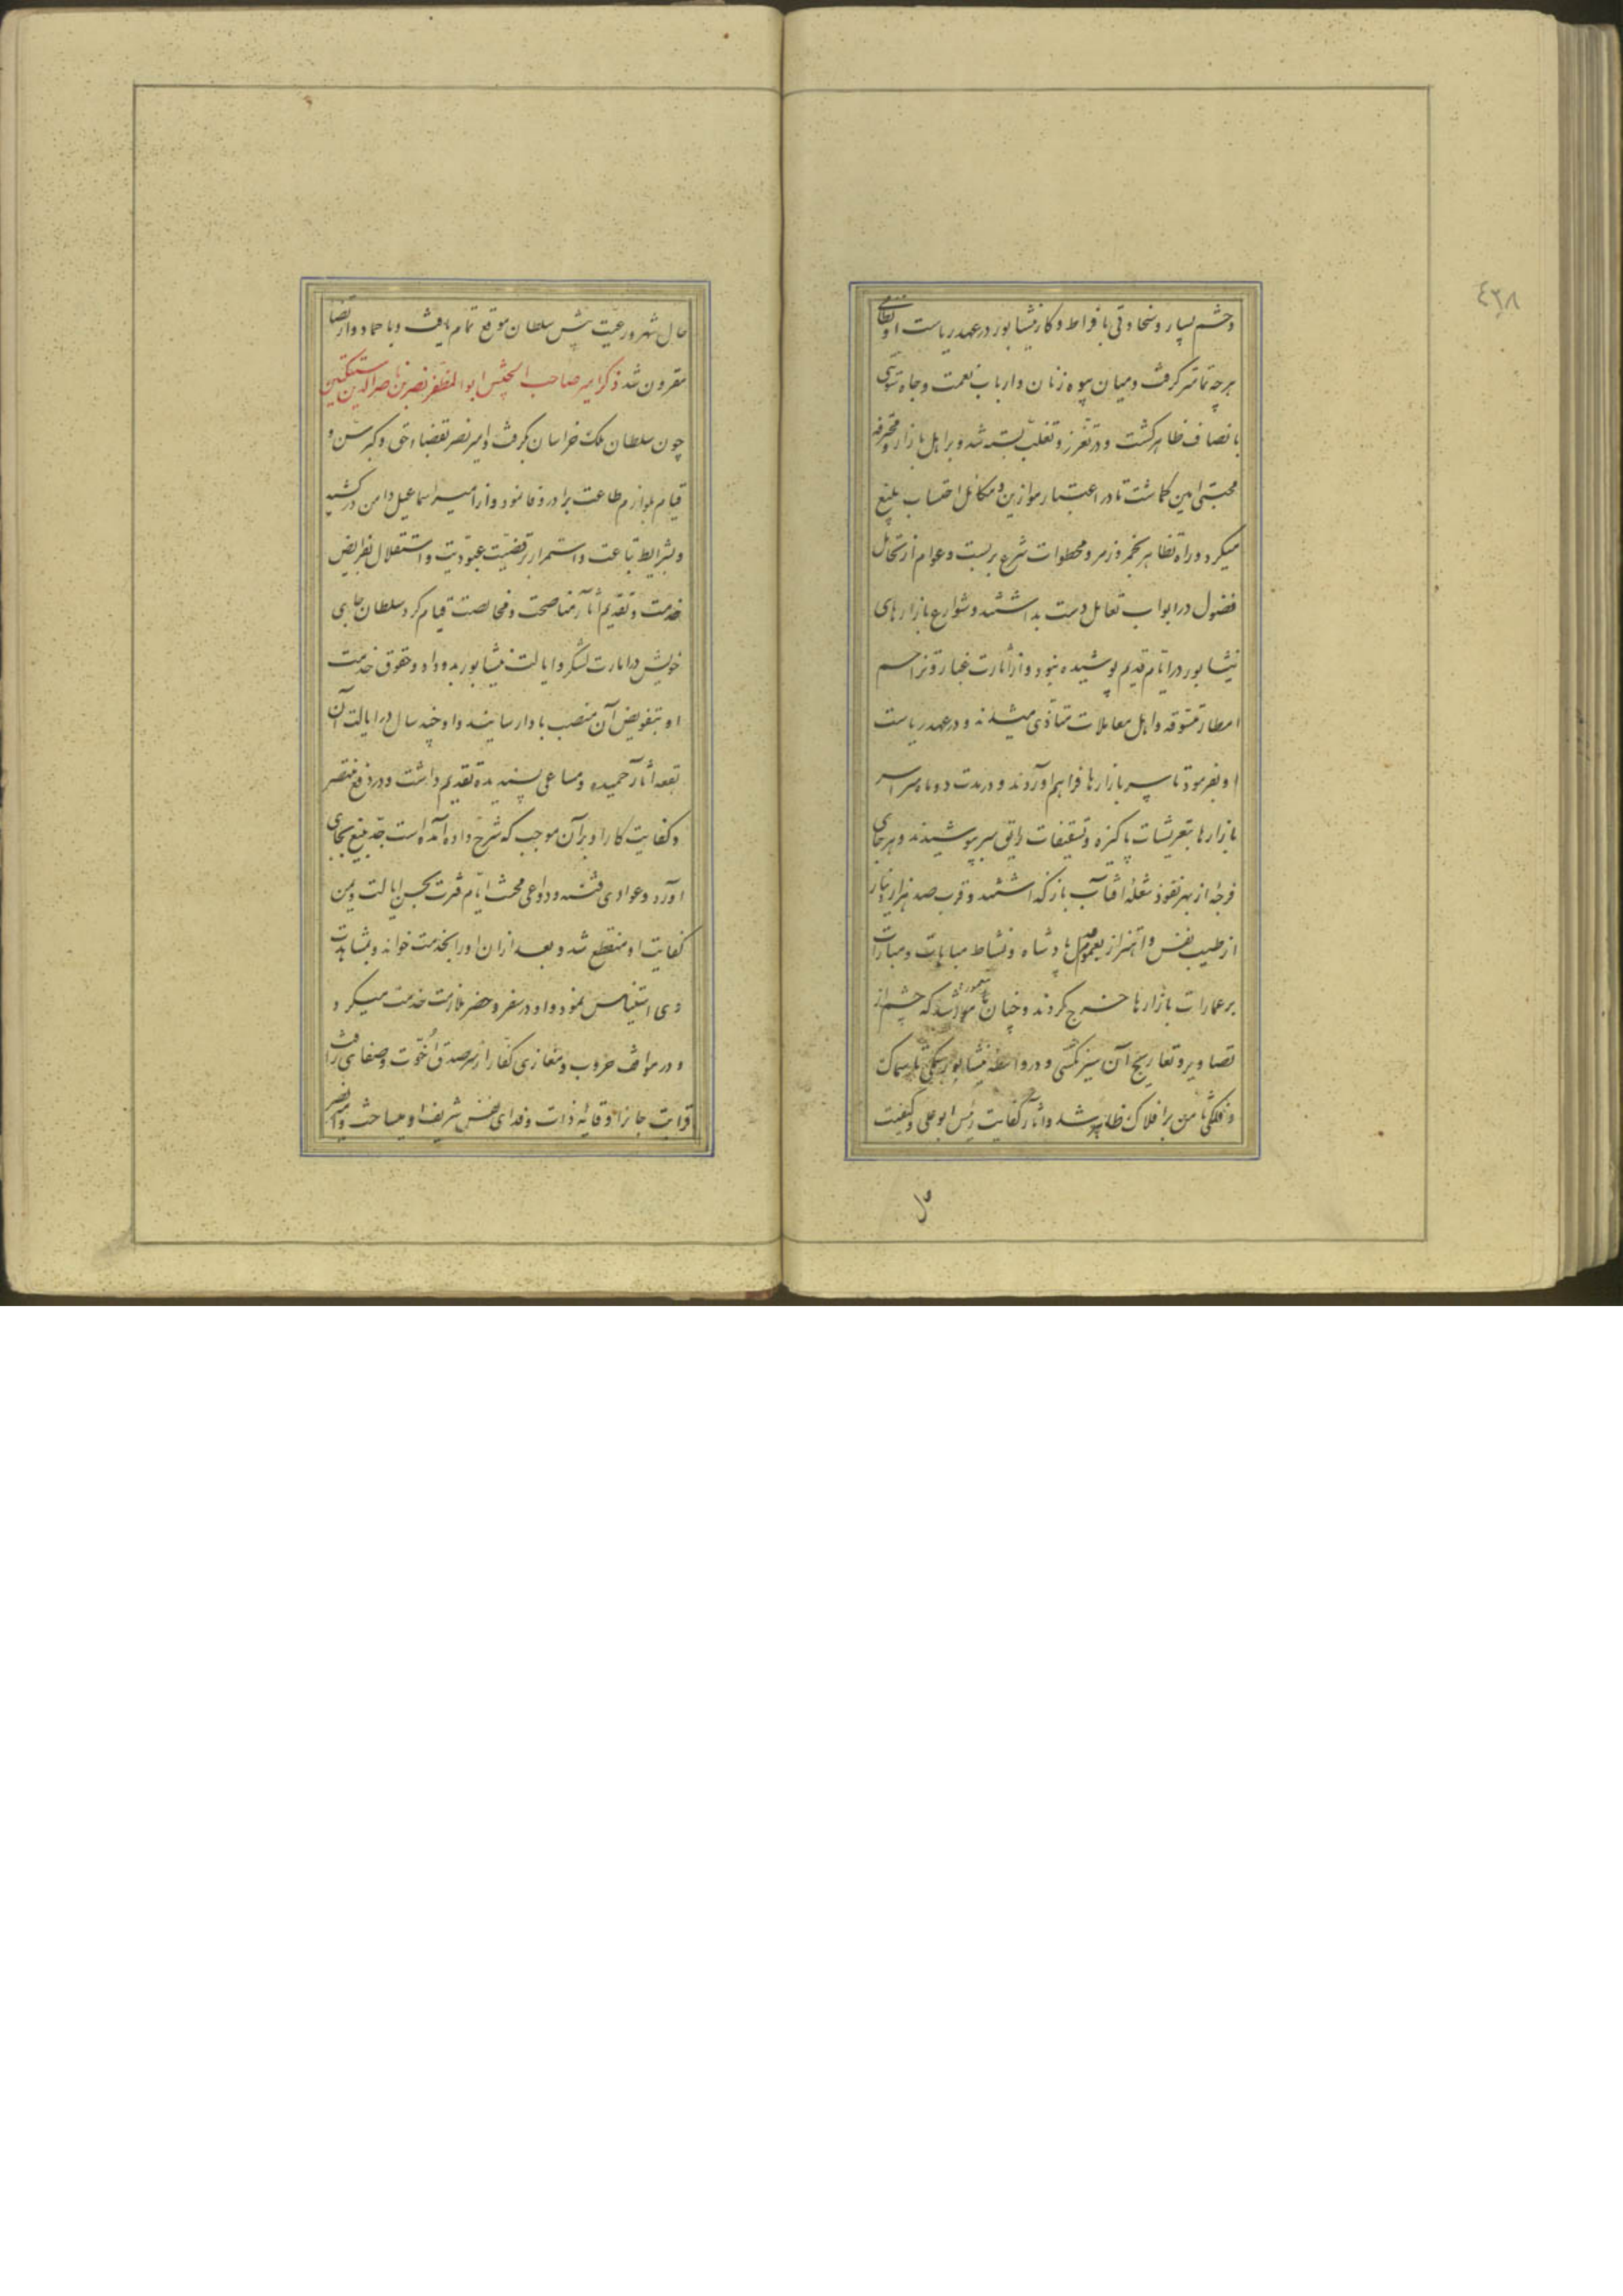 ٤٣٨
وحشم بسیار وسخاوتی بافراط وکار نیشابور در عهد ریاست او نظامی
هرچه تمامتر کرفت ومیان بیوه زنان وارباب نعمت وجاه تسویتی
بانصاف ظاهر کشت ودر تعزز وتغلب بسته شد وبر اهل بازار ومحترفه
محتسبی امین کماشت تا در اعتبار موازین ومکائیل احتساب بلیغ
میکرد وراه تظاهر بخمر وزمر ومحظورات شرع بربست وعوام از
فضول در ابواب تعامل دست بداشتند وشوارع بازارهای
نیشابور در ایام قدیم پوشیده نبود واز اثارت غبار وتزاحم
امطار متسوقه واهل معاملات متاذی میشدند ودر عهد ریاست
او بفرمود تا سر بازارها فراهم آوردند ودر مدت دو ماه سراسر
بازارها بتعریشات پاکیزه وتسقیفات رایق سر بپوشیدند وهر جای
فرجهٔ از بهر نفوذ شعلهٔ افتاب بازکذاشتند وقرب صد هزار دینار
از طیب نفس واهتزاز بعموم عدل پادشاه ونشاط مباهات ومبارات
بر عمارات بازارها خرج کردند وچنان معمور شد که چشم از
تصاویر وتعاریج آن سیر نکشی ودر واسطهٔ نیشابور سمکی تا سماک
وفلکی ثامن بر افلاک ظاهر شد وآثار کفایت رئیس ابو علی وکیفیت
حال
حال شهر ورعیت پیش سلطان موقع تمام یافت وباحماد وارتضا
مقرون شد ذکر امیر صاحب الجیش ابو المظفر نصر بن ناصر الدین سبکتکین
چون سلطان ملک خراسان کرفت وامیر نصر بقضاء حق وکبر سن و
قیام بلوازم طاعت برادر وفا نمود واز امیر اسماعیل دامن درکشید
وبشرایط تباعت واستمرار بر قضیت عبودیت واستقلال بفرایض
خدمت وتقدیم آثار مناصحت ومخالصت قیام کرد سلطان جای
خویش در امارت لشکر وایالت نیشابور بدو داد وحقوق خدمت
او بتفویض آن منصب بادا رسانید واو چند سال در ایالت آن
بقعه آثار حمیده ومساعی پسندیده تقدیم داشت ودر دفع منتصر
وکفایت کار او بر آن موجب که شرح داده آمده است جد بلیغ بجای
آورد وعوادی فتنه ودواعی محنت ایام فترت بحسن ایالت ویمن
کفایت او منقطع شد وبعد از ان او را بخدمت خواند وبمشاهدت
وی استیناس نمود واو در سفر وحضر ملازمت خدمت میکرد و
ودر مواقف حروب ومغازی کفار از سر صدق اخوت وصفای رافت
قرابت جانرا وقایهٔ ذات وفدای نفس شریف او میساخت وامیر نصر